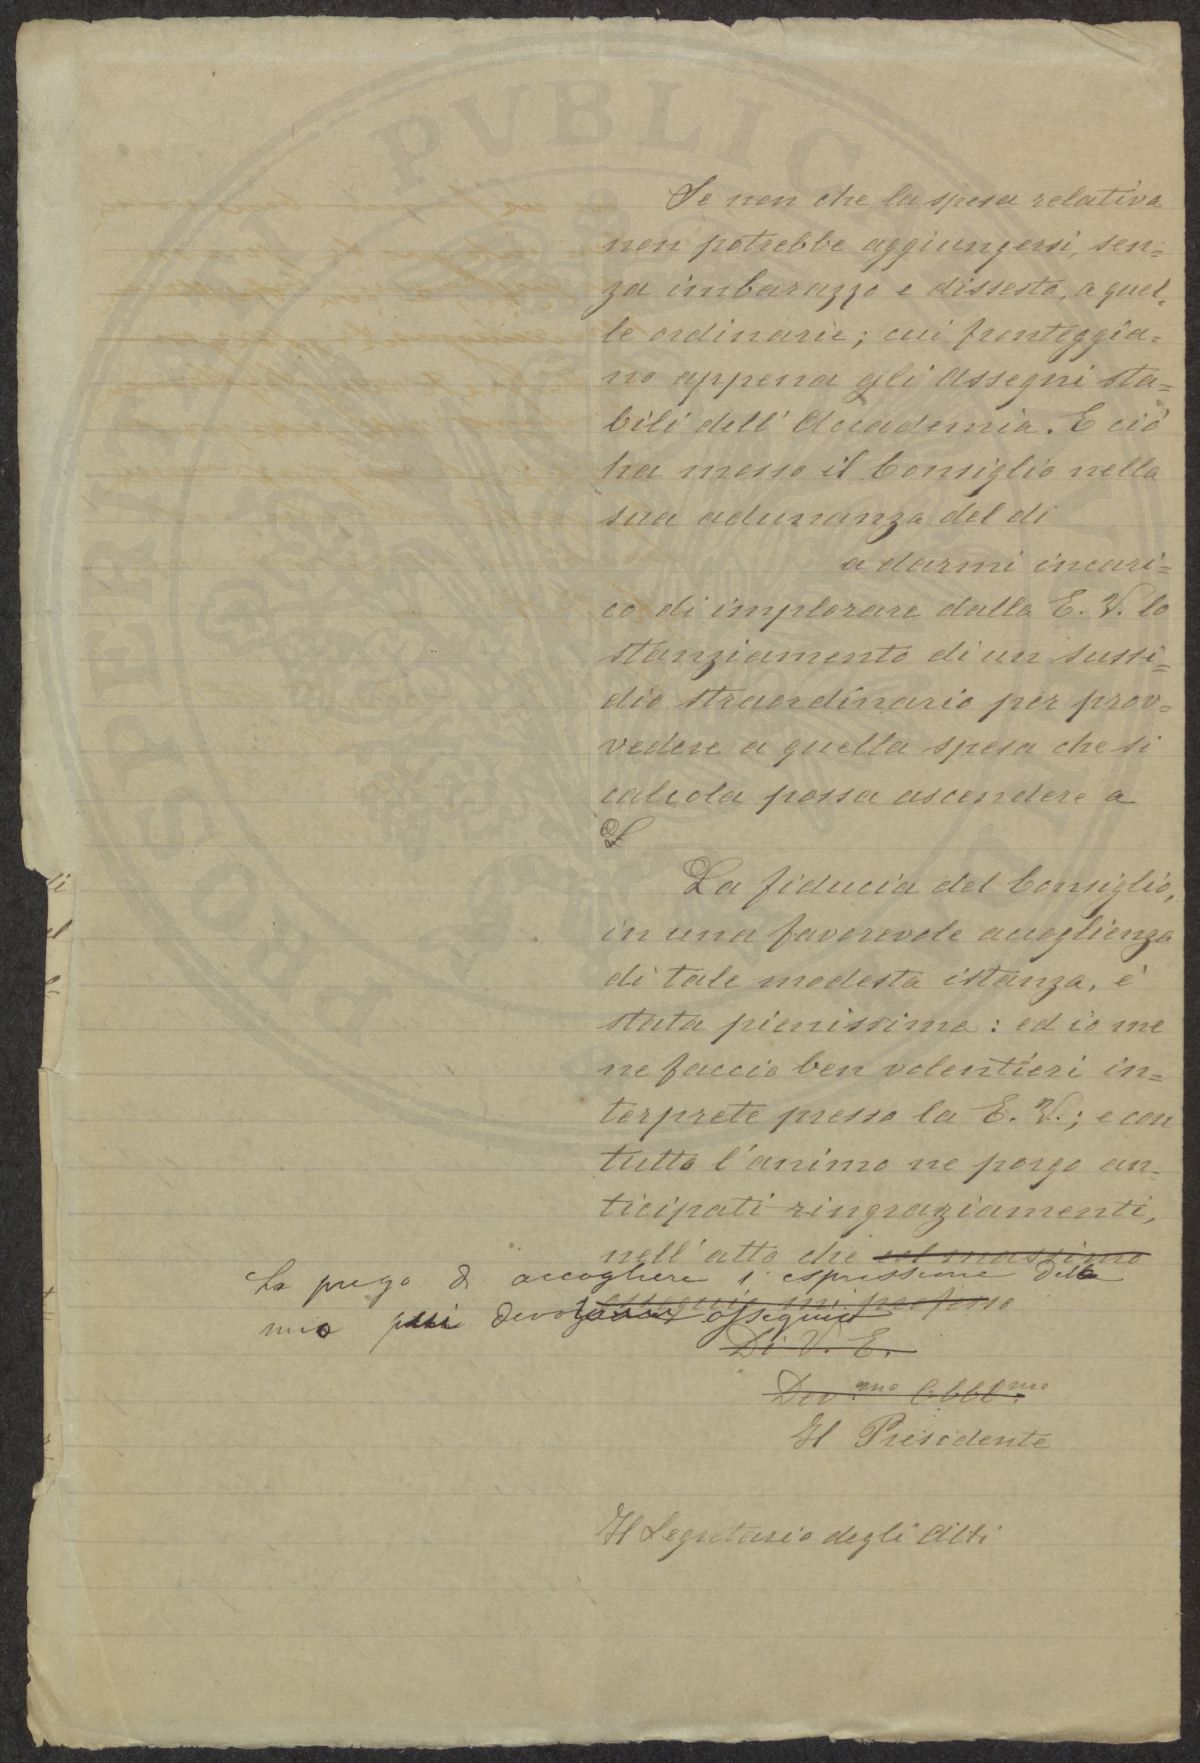 Se non che la spesa relativa
non potrebbe aggiungersi, sen=
za imbarazzo e dissesto, a quel=
le ordinarie; cui fronteggia=
no appena gli assegni sta=
bili dell' Accademia. E ciò
ha mosso il Consiglio nella
sua adunanza del di
a darmi incari=
co di implorare dalla E. V. lo
stanziamento di un sussi=
dio straordinario per prov=
vedere a quella spesa che si
calcola possa ascendere a
£
La fiducia del Consiglio,
in una favorevole accoglienza
di tale modesta istanza, è
stata pienissima: ed io me
ne faccio ben volentieri in=
terprete presso la E. V.; e con
tutto l'animo ne porgo an=
ticipati ringraziamenti,
nell' atto che col massimo
La prego di accogliere l'espressione delle
ossequio mi professo
mio più devoto ossequio
Di V. E.
Dev.mo Obbl.mo
Il Presidente
Il Segretario degli Atti